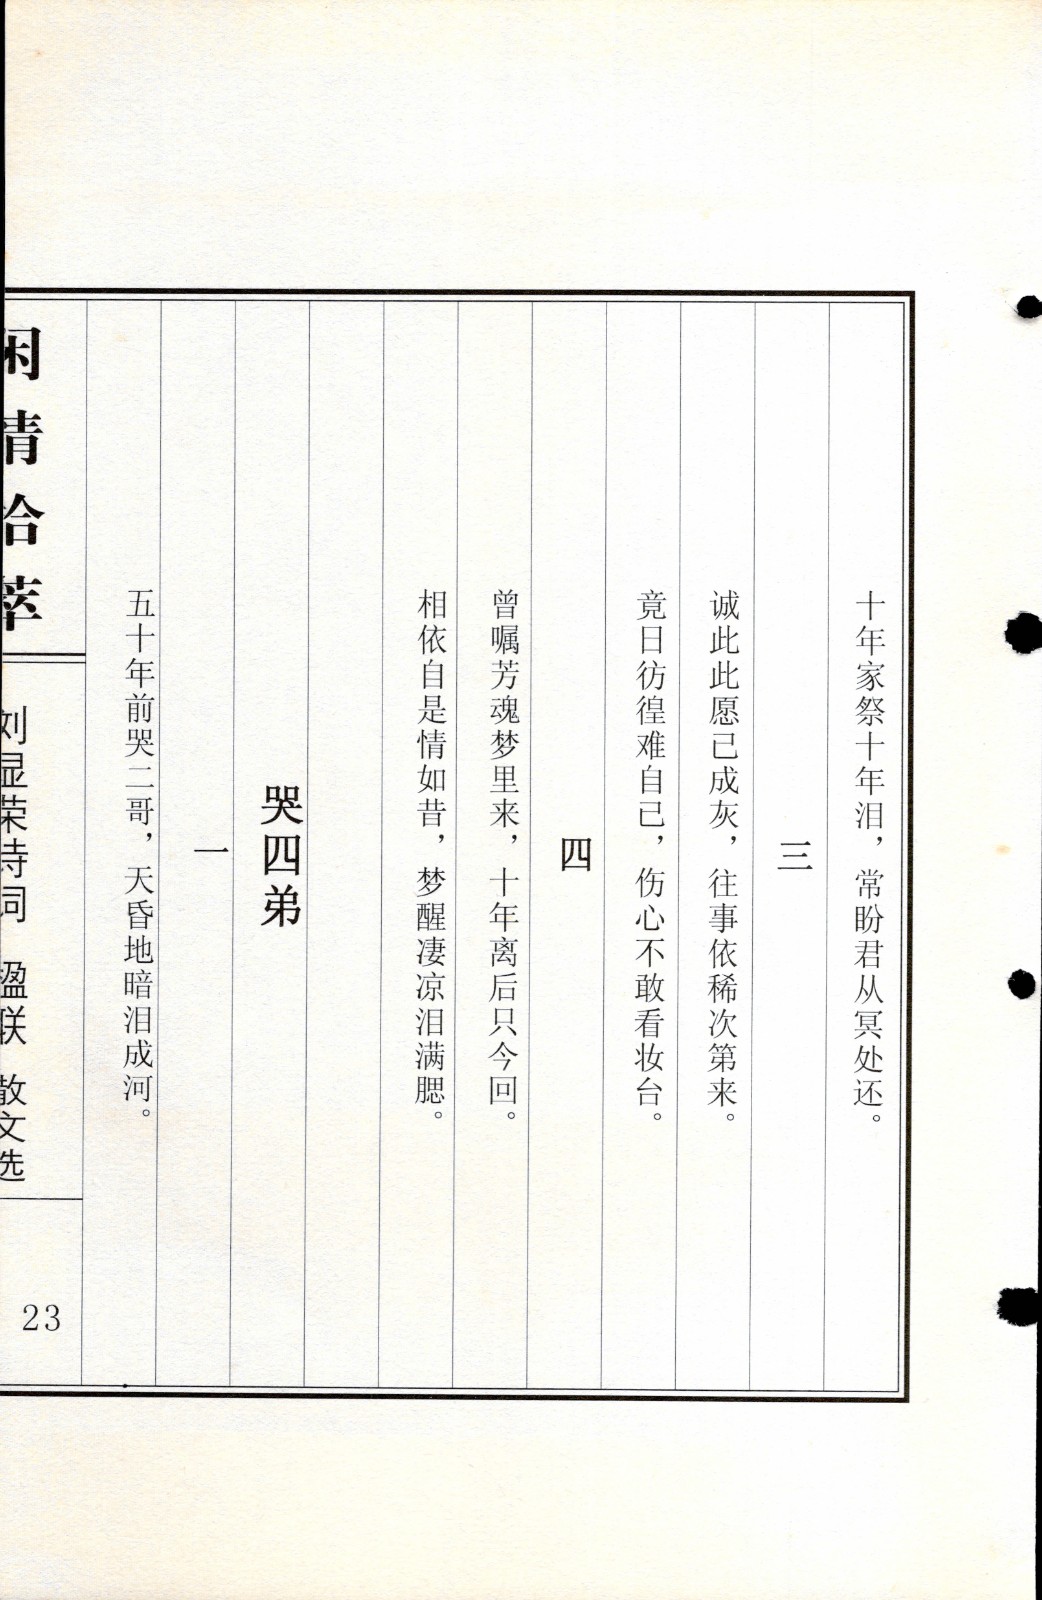 十年家祭十年泪，常盼君从冥处还。
三
诚此此愿已成灰，往事依稀次第来。
竟日彷徨难自已，伤心不敢看妆台。
四
曾嘱芳魂梦里来，十年离后只今回。
相依自是情如昔，梦醒凄凉泪满腮。
哭四弟
一
五十年前哭二哥，天昏地暗泪成河。
闲情拾萃
刘显荣诗词 楹联 散文选
23